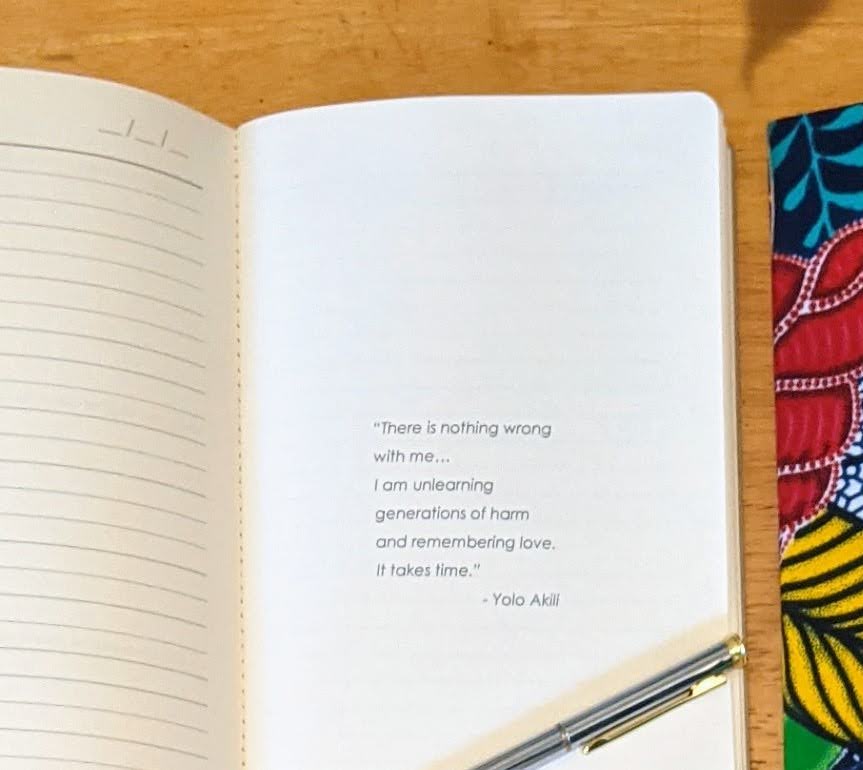 __/__/__
“There is nothing wrong
with me...
I am unlearning
generations of harm
and remembering love.
It takes time.”
- Yolo Akili